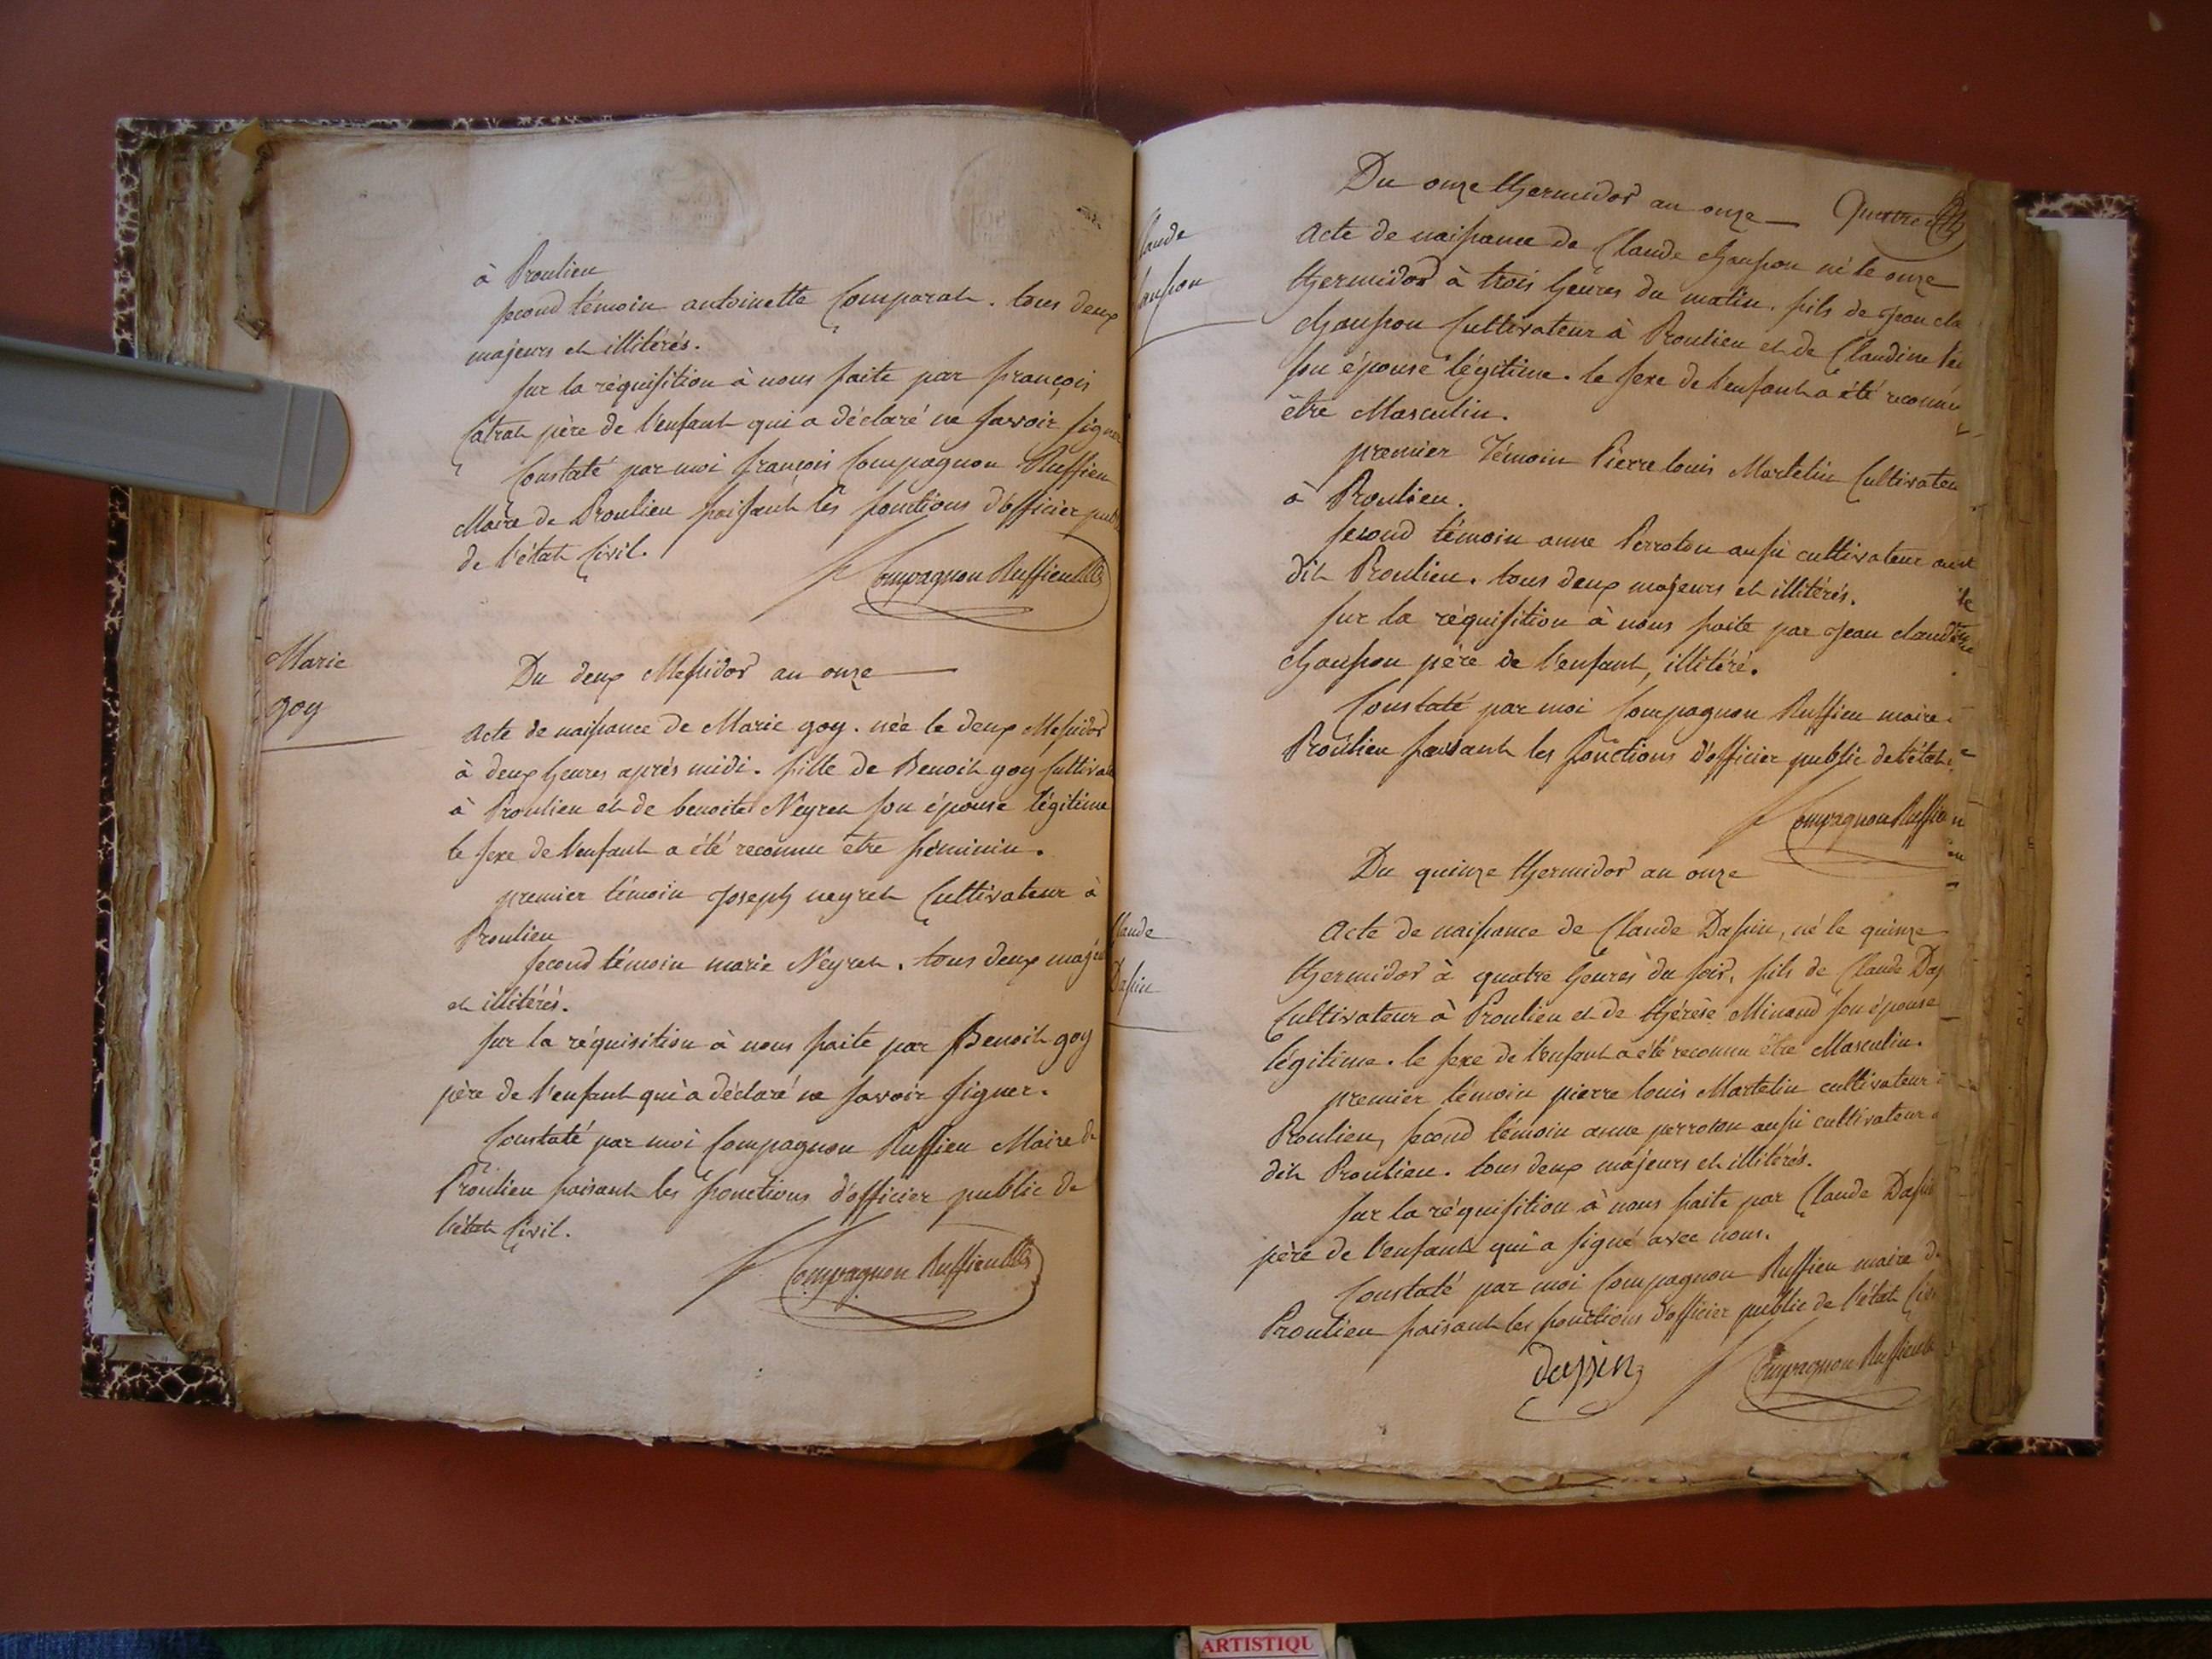 à Proulieu
second témoin antoinette Comparat. tous deux
majeurs et illitérés.
sur la réquisition à nous faite par françois
Catrat père de l'enfant qui a déclaré ne savoir signer
Constaté par moi françois Compagnon Ruffieu
Maire de Proulieu faisant les fonctions d'officier publ
de l'état Civil.
Compagnon Ruffieu
Marie
goy
Du deux Messidor an onze
Acte de naissance de Marie goy. née le deux Messidor
à deux heures après midi. fille de Benoit goy Cultivat
à Proulieu et de benoite Neyret son épouse légitime
le sexe de l'enfant a été reconnu etre féminin.
premier témoin Joseph neyret Cultivateur à
Proulieu
second témoin marie Neyret. tous deux majeu
et illitérés.
sur la réquisition à nous faite par Benoit goy
père de l'enfant qui a déclaré ne savoir signer.
Constaté par moi Compagnon Ruffieu Maire de
Proulieu faisant les fonctions d'officier public de
l'état Civil.
Compagnon Ruffieu
Du onze thermidor an onze
Quatre
laude
aupon
Acte de naissance de Claude Chaupon né le onze
thermidor à trois heures du matin. fils de Jean cla
Chaupon Cultivateur à Proulieu et de Claudine
son épouse légitime. le sexe de l'enfant a été reconnu
être Masculin.
premier Témoin Pierre louis Martelin Cultivateu
à Proulieu.
second témoin anne Perroton aussi cultivateur aud
dit Proulieu. tous deux majeurs et illitérés.
sur la réquisition à nous faite par Jean claude
Chaupon père de l'enfant, illitéré.
Constaté par moi Compagnon Ruffieu maire
Proulieu faisant les fonctions d'officier public de l'état
Compagnon Ruffieu
Du quinze thermidor an onze
Claude
Dassin
Acte de naissance de Claude Dassin, né le quinze
thermidor à quatre heures du soir, fils de Claude Das
Cultivateur à Proulieu et de thérèse Minand son épouse
légitime. le sexe de l'enfant a été reconnu être Masculin.
premier témoin pierre louis Martelin cultivateur à
Proulieu, second témoin anne perroton aussi cultivateur
dit Proulieu. tous deux majeurs et illitérés.
sur la réquisition à nous faite par Claude Dassin
père de l'enfant qui a signé avec nous.
Constaté par moi Compagnon Ruffieu maire de
Proulieu faisant les fonctions d'officier public de l'état Civi
dassin
Compagnon Ruffieu
ARTISTIQU